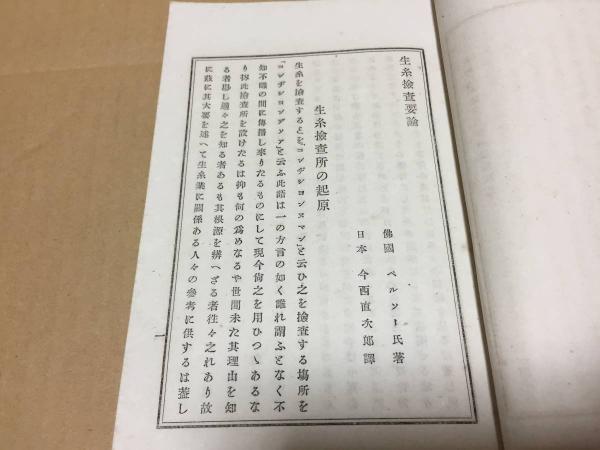 生糸檢査要論
佛國 ペルソー氏著
日本 今西直次郎譯
生糸檢査所の起原
生糸を檢査するを「コンヂシヨンヌマン」と云ひ之を檢査する塲所を
「コンヂシヨンデソア」と云ふ此語は一の方言の如く誰れ謂ふとなく不
知不識の間に傳播し來りたるものにして現今尙之を用ひつゝあるな
り抑此檢査所を設けたるは抑も何の爲めなるや世間未た其理由を知
る者尠し適々之を知る者あるも其根源を辨へざる者徃々之れあり故
に玆に其大要を述へて生糸業に關係ある人々の參考に供するは蓋し
一